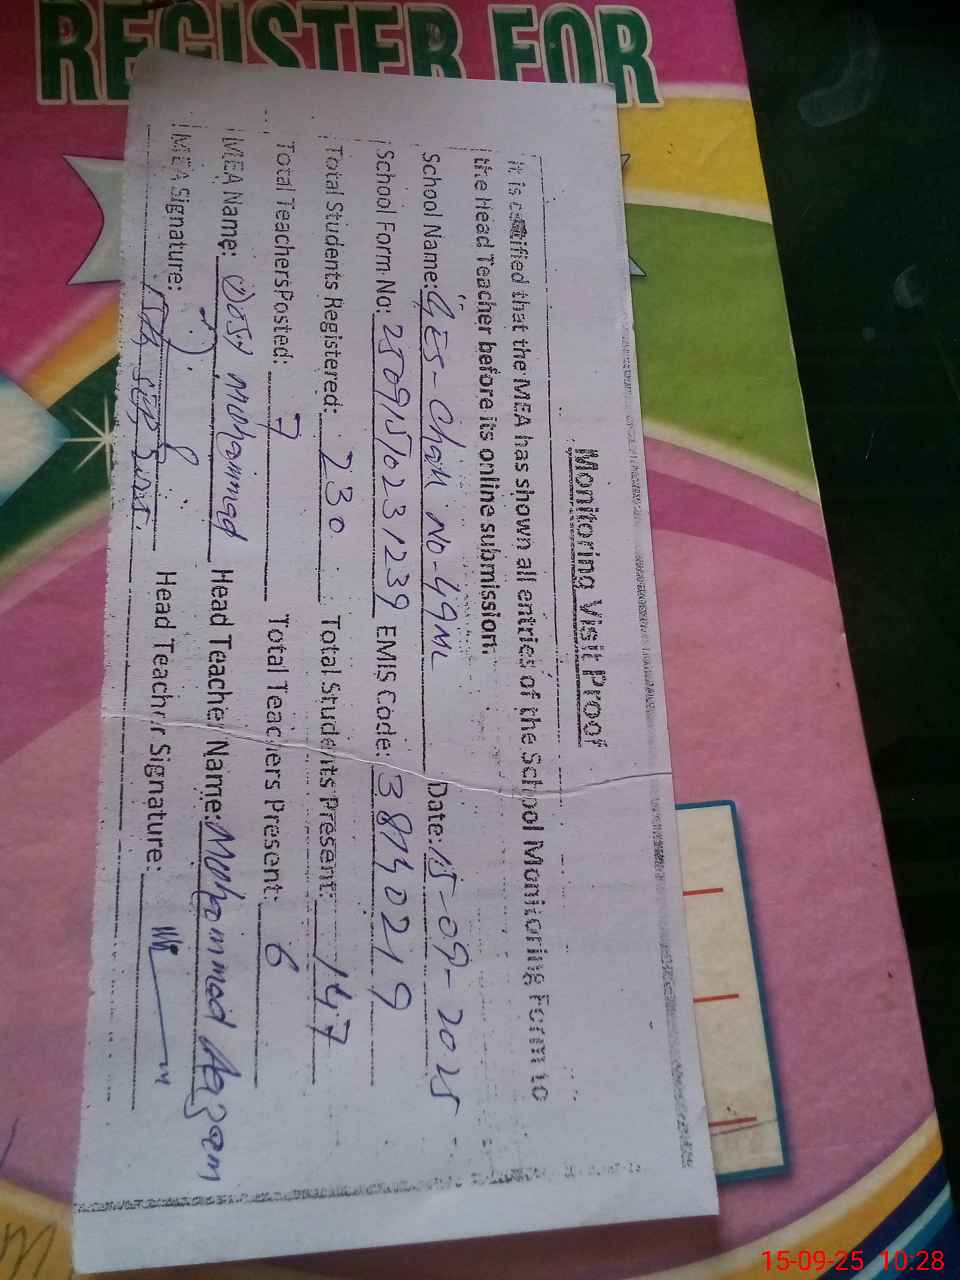 REGISTER FOR
Monitoring Visit Proof
It is certified that the MEA has shown all entries of the School Monitoring Form to
the Head Teacher before its online submission.
School Name: GES-Chak no-49ML Date: 15-09-2025
School Form No: 25091510231239 EMIS Code: 38140219
Total Students Registered: 230 Total Students Present: 147
Total Teachers Posted: 7 Total Teachers Present: 6
MEA Name: Dost Muhammad Head Teacher Name: Mohammad Aazam
MEA Signature: Head Teacher Signature:
15-09-25 10:28